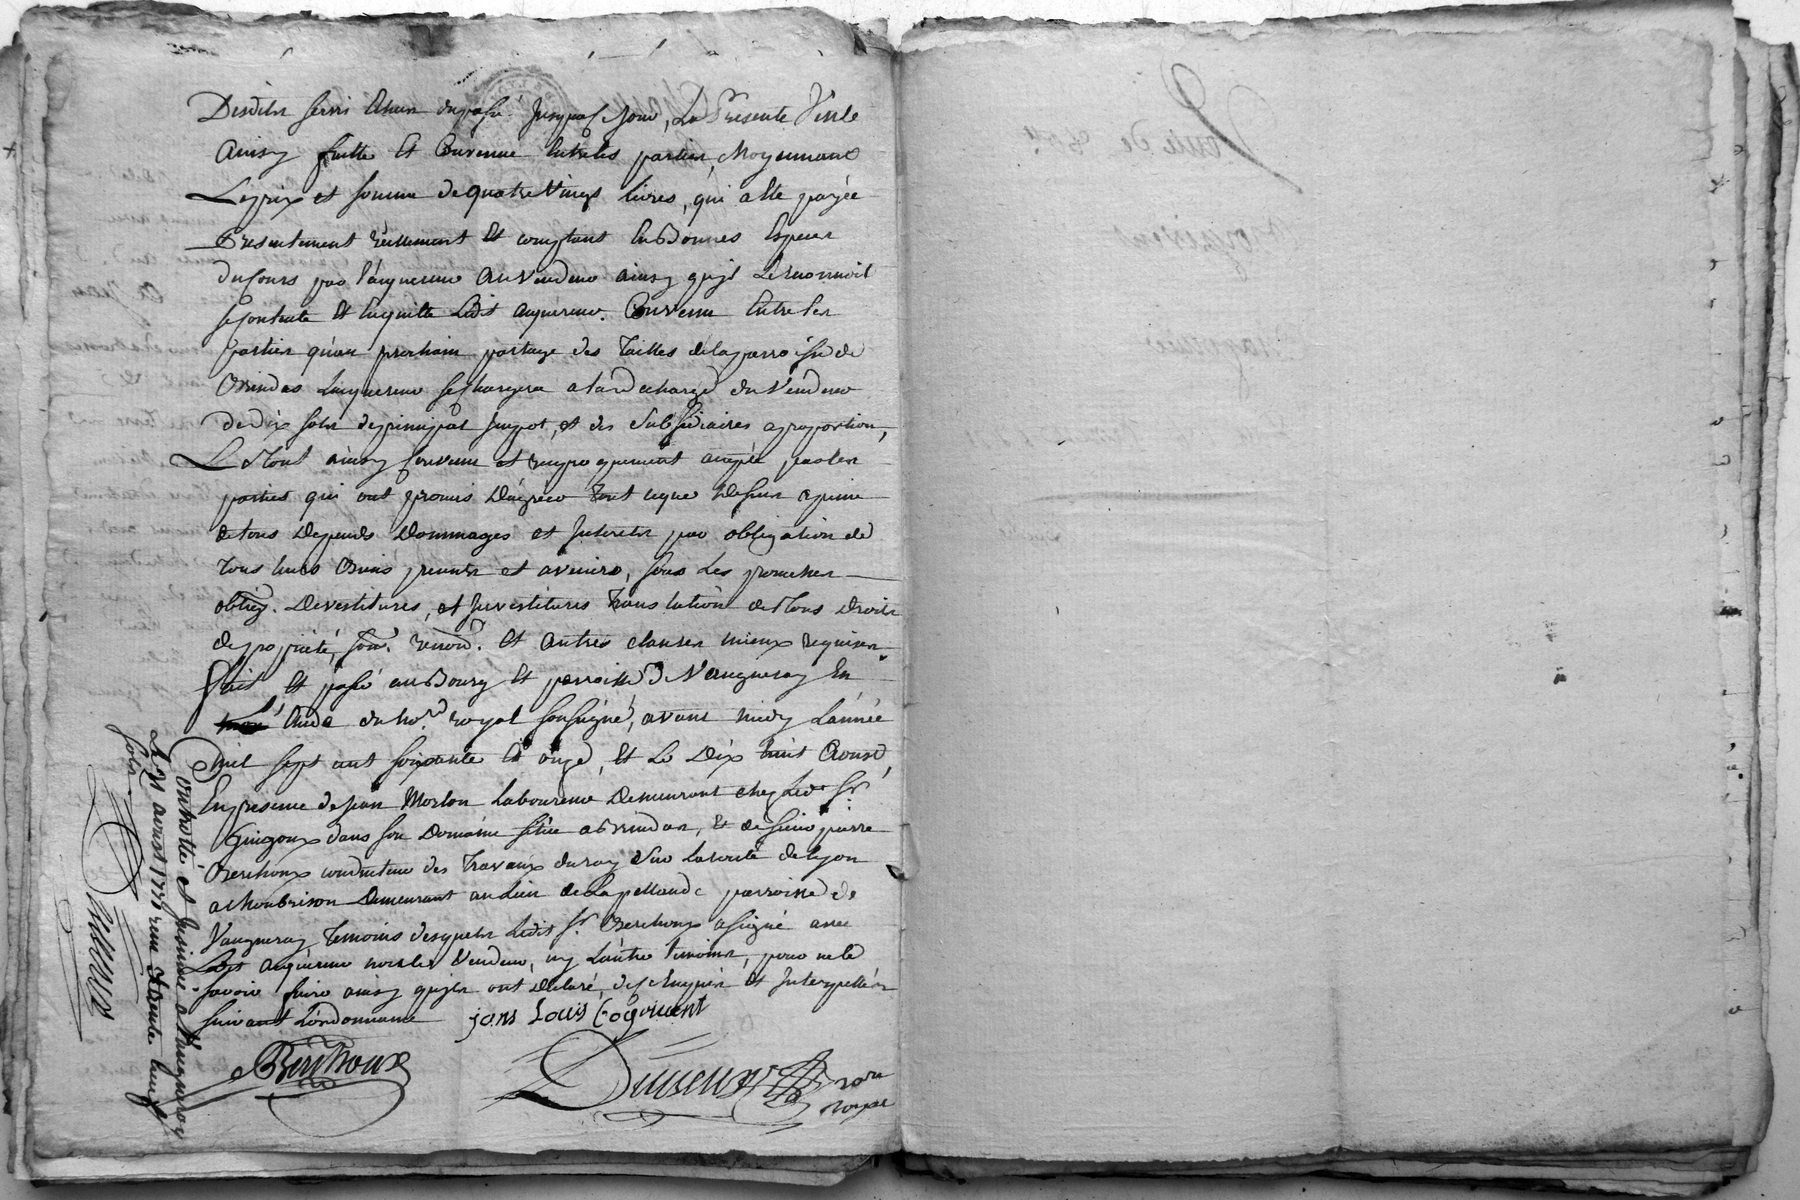 Desdits servis Echus du passé Jusqua ce Jour, La Presente Vente
Ainsy faitte Et Convenue Entre les parties, Moyennant
Le prix et somme de quatre Vingt livres, qui a Eté payée
Presentement réellement Et comptant En Bonnes Especes
du Cours par l'acquereur au Vendeur ainsy quil Le reconnoit
se contente Et En quitte Ledit acquereur. Convenu Entre les
parties qu'au prochain partage des Tailles de la parroisse de
Brindas Lacquereur se Chargera a la decharge du Vendeur
de dix sols de principal Impot, et des Subsidiaires a proportion,
Le Tout ainsy Convenu et reciproquement accepté par les
parties qui ont promis D'agreer tout ce que Dessus a peine
de tous Depends Dommages et Interets par obligation de
Tous leurs Biens presents et avenirs, sous Les promesses
oblig. Devestitures, et Investitures translation de Tous Droits
de propriété, soum. renon. Et autres clauses mieux requises
Fait Et passé au Bourg Et parroisse De Vaugneray En
L'Etude du No.re royal soussigné, avant midy L'année
Mil sept cent soixante Et onze, Et Le Dix huit Aoust,
En presence de Jean Morlon Laboureur Demeurant chez Led. Sr.
Guigoux dans son Domaine situé a Brindas, Et de Sieur pierre
Berthoux conducteur des Travaux du roy sur La route de Lyon
a Monbrison Demeurant au Lieu de La pellaude parroisse de
Vaugneray Temoins desquels Ledit Sr. Berthoux a signé avec
Ledit acquereur non les Vendeur, ny L'autre temoin, pour ne le
savoir faire ainsy quils ont Declaré, de ce Enquis Et Interpellés
suivant L'ordonnance jans Louis Cogniont
Berthoux
Duiseux No.re
royal
Controllé et Insinué a Vaugneray
Le 25 aoust 1771 reçu trente huit
sols